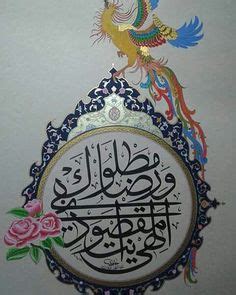 الهي انت مقصودي
ورضاك مطلوبي